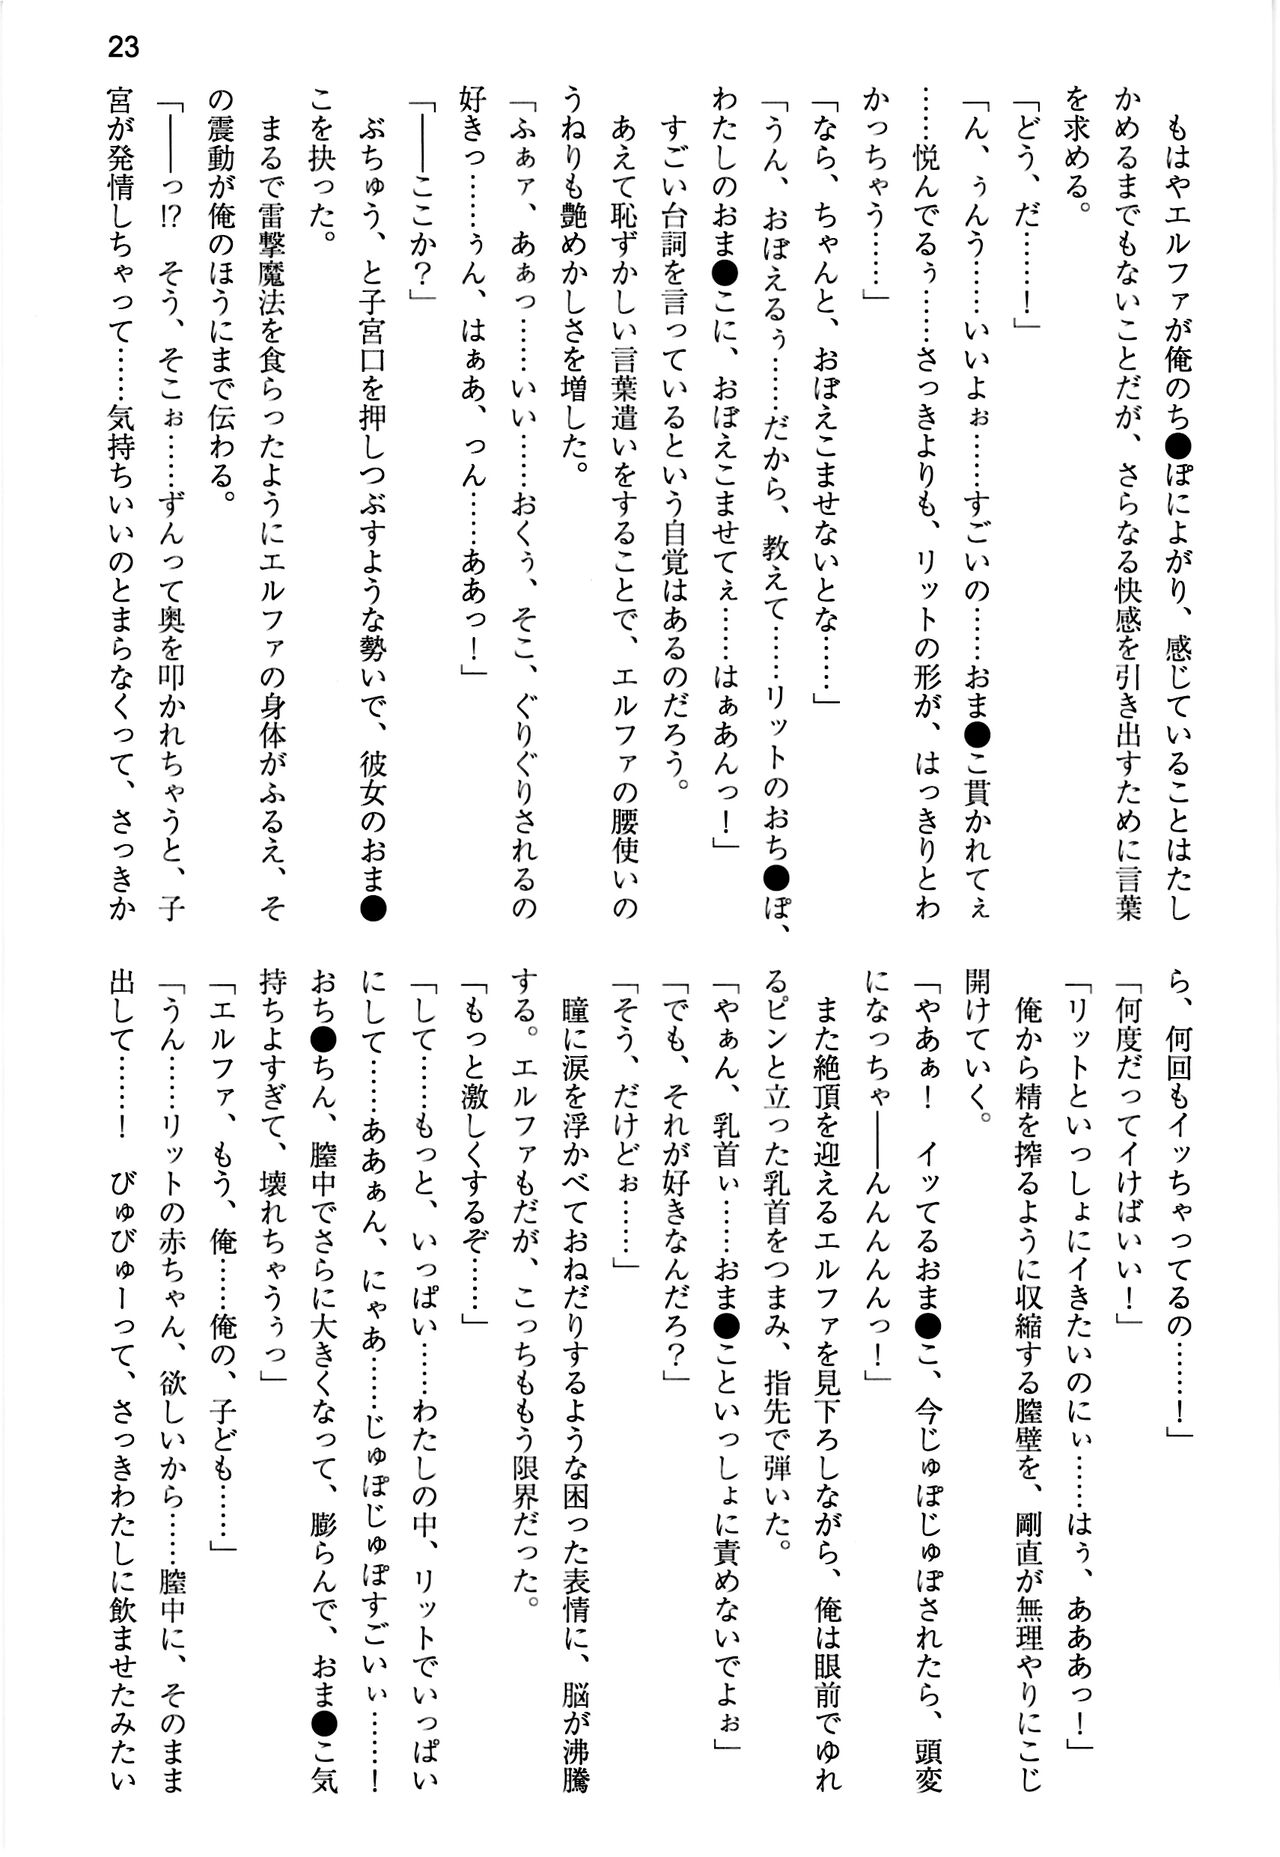 23
もはやエルファが俺のち●ぽによがり、感じていることはたし
かめるまでもないことだが、さらなる快感を引き出すために言葉
を求める。
「どう、だ……！」
「ん、ぅんう……いいよぉ……すごいの……おま●こ貫かれてぇ
……悦んでるぅ……さっきよりも、リットの形が、はっきりとわ
かっちゃう……」
「なら、ちゃんと、おぼえこませないとな……」
「うん、おぼえるぅ……だから、教えて……リットのおち●ぽ、
わたしのおま●こに、おぼえこませてぇ……はぁあんっ！」
すごい台詞を言っているという自覚はあるのだろう。
あえて恥ずかしい言葉遣いをすることで、エルファの腰使いの
うねりも艶めかしさを増した。
「ふぁァ、あぁっ……いい……おくぅ、そこ、ぐりぐりされるの
好きっ……ぅん、はぁあ、っん……ああっ！」
「――ここか？」
ぶちゅう、と子宮口を押しつぶすような勢いで、彼女のおま●
こを抉った。
まるで雷撃魔法を食らったようにエルファの身体がふるえ、そ
の震動が俺のほうにまで伝わる。
「――っ!?　そう、そこぉ……ずんって奥を叩かれちゃうと、子
宮が発情しちゃって……気持ちいいのとまらなくって、さっきか
ら、何回もイッちゃってるの……！」
「何度だってイけばいい！」
「リットといっしょにイきたいのにぃ……はぅ、あああっ！」
俺から精を搾るように収縮する膣壁を、剛直が無理やりにこじ
開けていく。
「やあぁ！　イッてるおま●こ、今じゅぽじゅぽされたら、頭変
になっちゃ――んんんんっ！」
また絶頂を迎えるエルファを見下ろしながら、俺は眼前でゆれ
るピンと立った乳首をつまみ、指先で弾いた。
「やぁん、乳首ぃ……おま●こといっしょに責めないでよぉ」
「でも、それが好きなんだろ？」
「そう、だけどぉ……」
瞳に涙を浮かべておねだりするような困った表情に、脳が沸騰
する。エルファもだが、こっちももう限界だった。
「もっと激しくするぞ……」
「して……もっと、いっぱい……わたしの中、リットでいっぱい
にして……ああぁん、にゃあ……じゅぽじゅぽすごいぃ……！
おち●ちん、膣中でさらに大きくなって、膨らんで、おま●こ気
持ちよすぎて、壊れちゃうぅっ」
「エルファ、もう、俺……俺の、子ども……」
「うん……リットの赤ちゃん、欲しいから……膣中に、そのまま
出して……！　びゅびゅーって、さっきわたしに飲ませたみたい